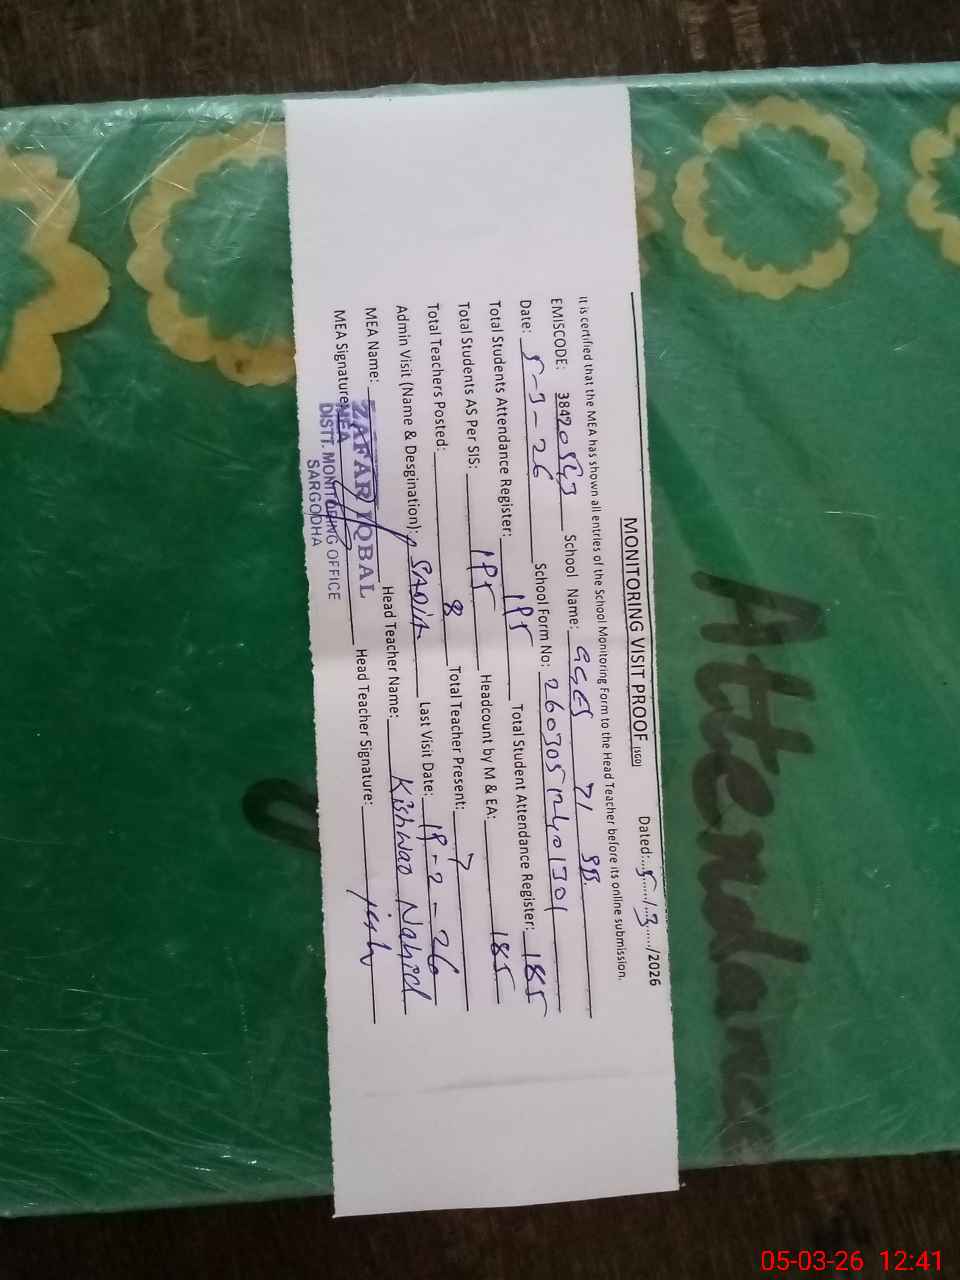 MONITORING VISIT PROOF (SGD)
Dated:...5....../...3....../2026
It is certified that the MEA has shown all entries of the School Monitoring Form to the Head Teacher before its online submission.
EMISCODE: 38420543 School Name: GGES 71 SB.
Date: 5-3-26 School Form No:
Total Students Attendance Register: 195 Total Student Attendance Register: 185
Total Students AS Per SIS: 195 Headcount by M & EA: 185
Total Teachers Posted: 8 Total Teacher Present: 7
Admin Visit (Name & Desgination): SADIA Last Visit Date: 19-2-26
MEA Name: ZAFAR IQBAL Head Teacher Name: Kishwar Nahid
MEA Signature: Head Teacher Signature:
MEA
DISTT. MONITORING OFFICE
SARGODHA
Attendance
05-03-26 12:41